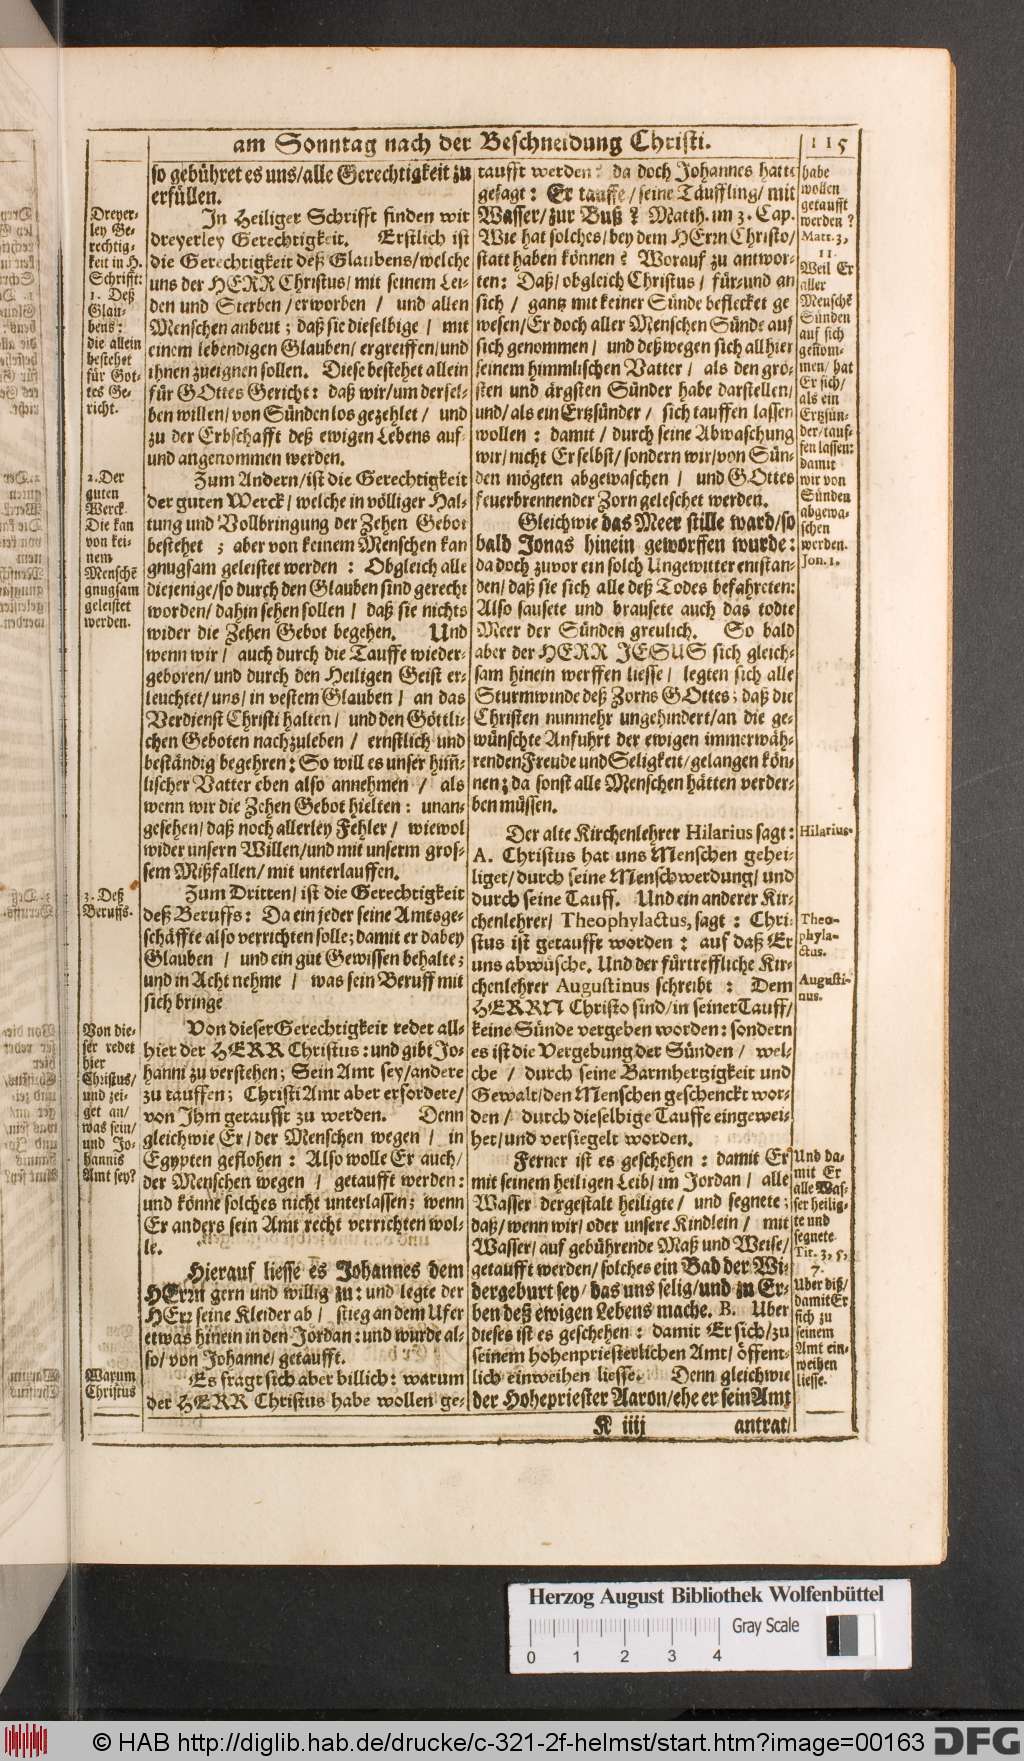 am Sonntag nach der Beschneidung Christi.
115
Dreyer-
ley Ge-
rechtig-
keit in H.
Schrifft:
1. Deß
Glau-
bens:
die allein
bestehet
für Got-
tes Ge-
richt.
2. Der
guten
Werck
Die kan
von kei-
nem
Menschē
gnugsam
geleistet
werden.
3. Deß
Beruffs.
Von die-
ser redet
hier
Christus/
und zei-
get an/
was sein/
und Jo-
hannis
Amt sey?
Warum
Christus
so gebühret es uns/alle Gerechtigkeit zu
erfüllen.
In Heiliger Schrifft finden wir
dreyerley Gerechtigkeit. Erstlich ist
die Gerechtigkeit deß Glaubens/welche
uns der HERR Christus/ mit seinem Lei-
den und Sterben/ erworben / und allen
Menschen anbeut; daß sie dieselbige / mit
einem lebendigen Glauben/ ergreiffen/und
ihnen zueignen sollen. Diese bestehet allein
für GOttes Gericht: daß wir/um dersel-
ben willen/ von Sünden los gezehlet / und
zu der Erbschafft deß ewigen Lebens auf-
und angenommen werden.
Zum Andern/ist die Gerechtigkeit
der guten Werck/ welche in völliger Hal-
tung und Vollbringung der Zehen Gebot
bestehet ; aber von keinem Menschen kan
gnugsam geleistet werden : Obgleich alle
diejenige/so durch den Glauben sind gerecht
worden/ dahin sehen sollen / daß sie nichts
wider die Zehen Gebot begehen. Und
wenn wir / auch durch die Tauffe wieder-
geboren/ und durch den Heiligen Geist er-
leuchtet/ uns/ in vestem Glauben / an das
Verdienst Christi halten / und den Göttli-
chen Geboten nachzuleben / ernstlich und
beständig begehren: So will es unser him̃-
lischer Vatter eben also annehmen / als
wenn wir die Zehen Gebot hielten: unan-
gesehen/ daß noch allerley Fehler / wiewol
wider unsern Willen/und mit unserm gros-
sem Mißfallen/ mit unterlauffen.
Zum Dritten/ ist die Gerechtigkeit
deß Beruffs: Da ein jeder seine Amtsge-
schäffte also verrichten solle; damit er dabey
Glauben / und ein gut Gewissen behalte;
und in Acht nehme / was sein Beruff mit
sich bringe
Von dieser Gerechtigkeit redet all-
hier der HERR Christus: und gibt Jo-
hanni zu verstehen; Sein Amt sey/andere
zu tauffen; Christi Amt aber erfordere/
von Ihm getaufft zu werden. Denn
gleichwie Er/ der Menschen wegen / in
Egypten geflohen : Also wolle Er auch/
der Menschen wegen / getaufft werden:
und könne solches nicht unterlassen; wenn
Er anders sein Amt recht verrichten wol-
le.
Hierauf liesse es Johannes dem
HErrn gern und willig zu: und legte der
HErr seine Kleider ab / stieg an dem Ufer
etwas hinein in den Jordan: und wurde al-
so/ von Johanne/ getaufft.
Es frägt sich aber billich: warum
der HERR Christus habe wollen ge-
taufft werden? da doch Johannes hatte
gesagt: Er tauffe/ seine Täuffling/ mit
Wasser/ zur Buß? Matth. im 3. Cap.
Wie hat solches/ bey dem HErrn Christo/
statt haben können? Worauf zu antwor-
ten: Daß/ obgleich Christus / für-und an
sich / gantz mit keiner Sünde beflecket ge
wesen/ Er doch aller Menschen Sünde auf
sich genommen / und deßwegen sich allhier
seinem himmlischen Vatter / als den grö-
sten und ärgsten Sünder habe darstellen/
und/ als ein Ertzsünder / sich tauffen lassen
wollen : damit / durch seine Abwaschung
wir/ nicht Er selbst/ sondern wir/von Sün-
den mögten abgewaschen / und GOttes
feuerbrennender Zorn geleschet werden.
Gleichwie das Meer stille ward/so
bald Jonas hinein geworffen wurde:
da doch zuvor ein solch Ungewitter entstan-
den/ daß sie sich alle deß Todes befahreten:
Also sausete und brausete auch das todte
Meer der Sünden greulich. So bald
aber der HERR JESUS sich gleich-
sam hinein werffen liesse/ legten sich alle
Sturmwinde deß Zorns GOttes; daß die
Christen nunmehr ungehindert/an die ge-
wünschte Anfuhrt der ewigen immerwäh-
renden Freude und Seligkeit/ gelangen kön-
nen; da sonst alle Menschen hätten verder-
ben müssen.
Der alte Kirchenlehrer Hilarius sagt:
A. Christus hat uns Menschen gehei-
liget/ durch seine Menschwerdung/ und
durch seine Tauff. Und ein anderer Kir-
chenlehrer/ Theophylactus, sagt : Chri-
stus ist getaufft worden : auf daß Er
uns abwüsche. Und der fürtreffliche Kir-
chenlehrer Augustinus schreibt : Dem
HERRN Christo sind/ in seiner Tauff/
keine Sünde vergeben worden: sondern
es ist die Vergebung der Sünden / wel-
che / durch seine Barmhertzigkeit und
Gewalt/ den Menschen geschenckt wor-
den / durch dieselbige Tauffe eingewei-
het/ und versiegelt worden.
Ferner ist es geschehen : damit Er
mit seinem heiligen Leib/ im Jordan / alle
Wasser dergestalt heiligte/ und segnete;
daß/ wenn wir/ oder unsere Kindlein/ mit
Wasser/ auf gebührende Maß und Weise/
getaufft werden/ solches ein Bad der Wi-
dergeburt sey/ das uns selig/ und zu Er-
ben deß ewigen Lebens mache. B. Uber
dieses ist es geschehen : damit Er sich/ zu
seinem hohenpriesterlichen Amt/ öffent-
lich einweihen liesse. Denn gleichwie
der Hohepriester Aaron/ehe er sein Amt
habe
wollen
getaufft
werden?
Matt. 3,
11.
Weil Er
aller
Menschē
Sünden
auf sich
genom-
men/ hat
Er sich/
als ein
Ertzsün-
der/tauf-
fen lassen:
damit
wir von
Sünden
abgewa-
schen
werden.
Jon. 1.
Hilarius.
Theo-
phyla-
ctus.
Augusti-
nus.
Und da-
mit Er
alle Was-
ser heilig-
te und
segnete
Tit. 3, 5,
7.
Uber diß/
damit Er
sich zu
seinem
Amt ein-
weihen
liesse.
K iiij
antrat/
Herzog August Bibliothek Wolfenbüttel
Gray Scale
0 1 2 3 4
© HAB http://diglib.hab.de/drucke/c-321-2f-helmst/start.htm?image=00163
DFG